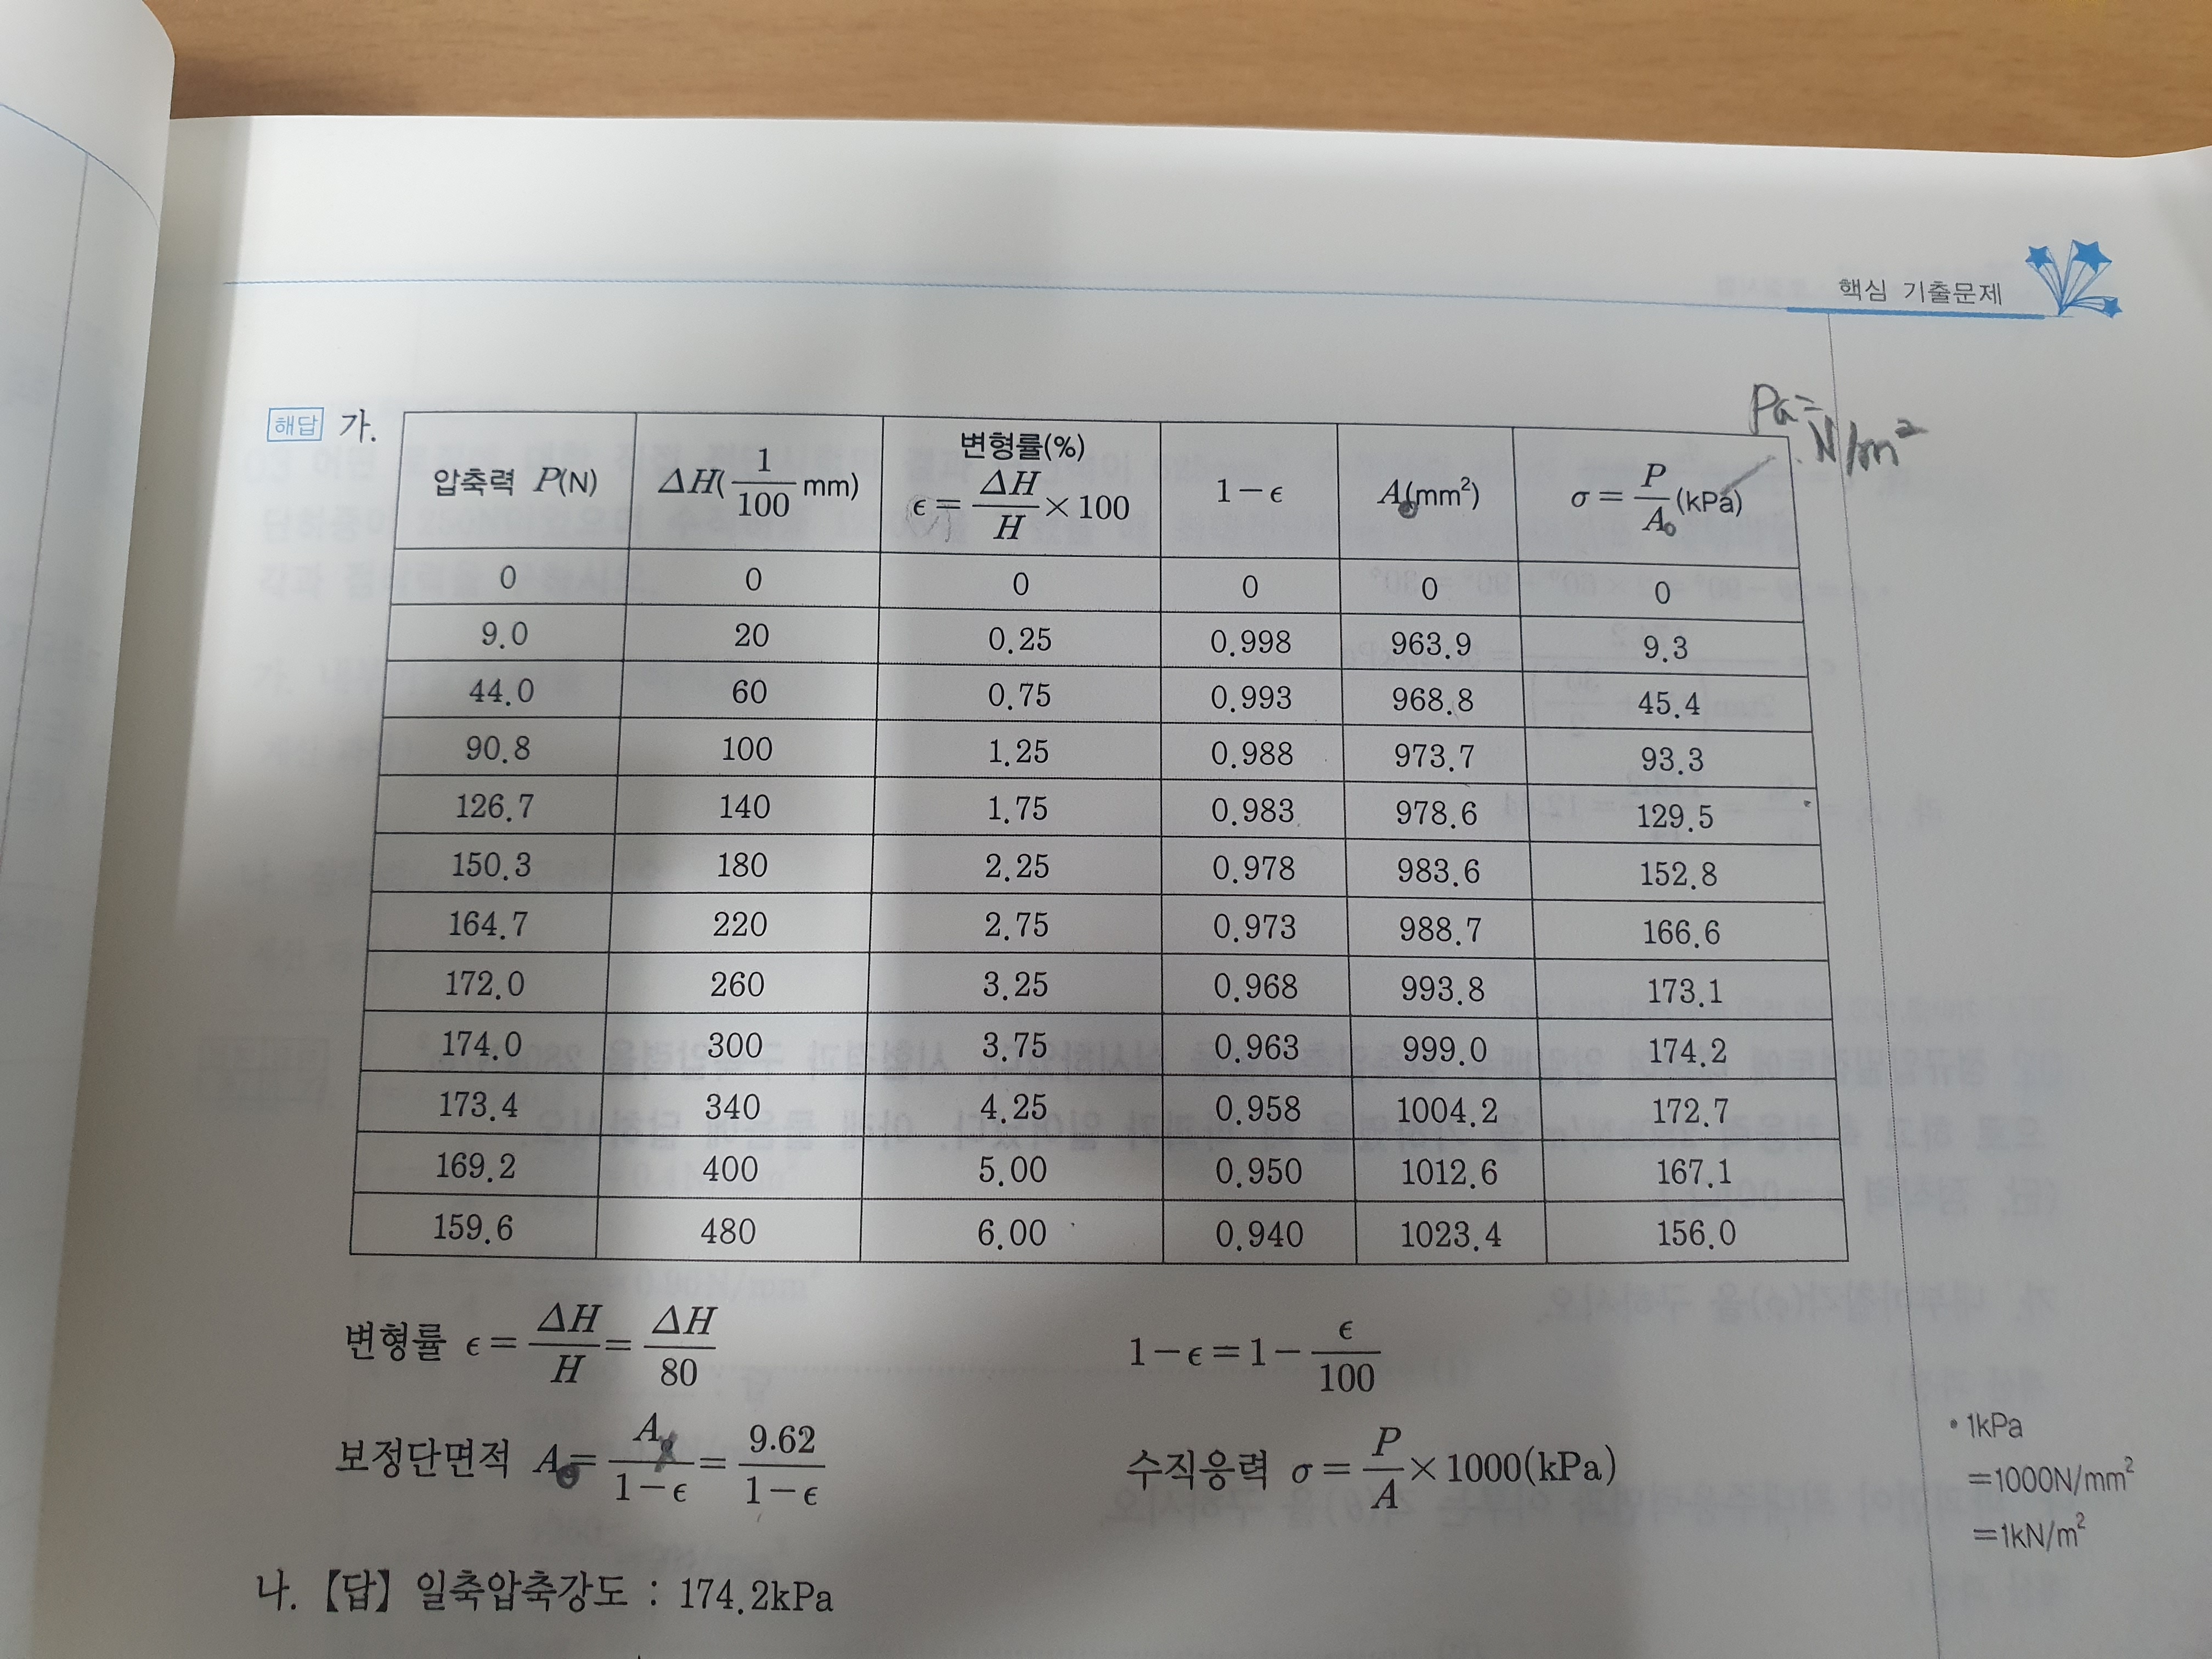 핵심 기출문제
Pa=
N/m²
해답 가.
압축력 P(N) | ΔH(1/100 mm) | 변형률(%) ϵ=ΔH/H×100 | 1-ϵ | A₀(mm²) | σ=P/A₀(kPa)
0 | 0 | 0 | 0 | 0 | 0
9.0 | 20 | 0.25 | 0.998 | 963.9 | 9.3
44.0 | 60 | 0.75 | 0.993 | 968.8 | 45.4
90.8 | 100 | 1.25 | 0.988 | 973.7 | 93.3
126.7 | 140 | 1.75 | 0.983 | 978.6 | 129.5
150.3 | 180 | 2.25 | 0.978 | 983.6 | 152.8
164.7 | 220 | 2.75 | 0.973 | 988.7 | 166.6
172.0 | 260 | 3.25 | 0.968 | 993.8 | 173.1
174.0 | 300 | 3.75 | 0.963 | 999.0 | 174.2
173.4 | 340 | 4.25 | 0.958 | 1004.2 | 172.7
169.2 | 400 | 5.00 | 0.950 | 1012.6 | 167.1
159.6 | 480 | 6.00 | 0.940 | 1023.4 | 156.0
변형률 ϵ=ΔH/H=ΔH/80
1-ϵ=1-ϵ/100
보정단면적 A₀=A/(1-ϵ)=9.62/(1-ϵ)
수직응력 σ=P/A×1000(kPa)
• 1kPa
=1000N/mm²
=1kN/m²
나. 【답】 일축압축강도 : 174.2kPa